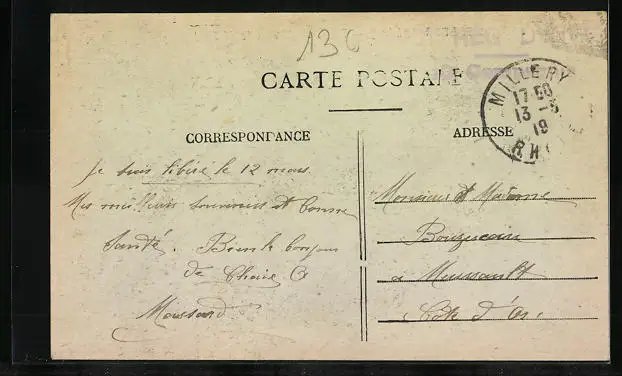 13
CARTE POSTALE
MILLERY
17 50
13 -5
19
RH
CORRESPONDANCE
ADRESSE
Je suis libéré le 12 mars.
Mes meilleurs souvenirs et bonne
santé. Bien le bonjour
de
Monsieur et Madame
a Meursault
Côte d'Or